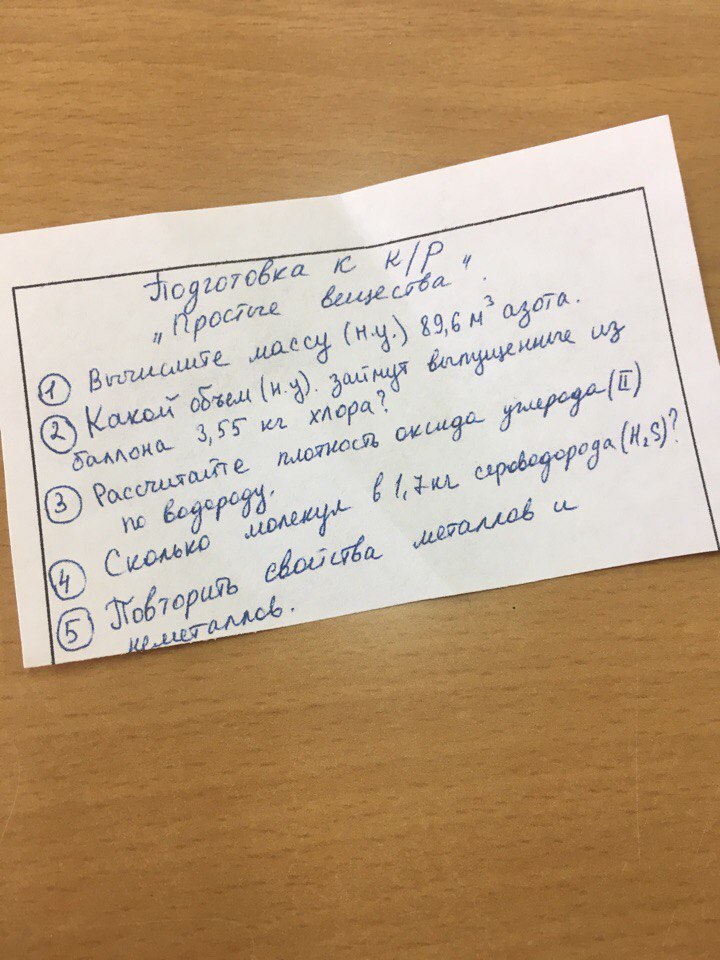 Подготовка к К/Р
„Простые вещества".
① Вычислите массу (н.у.) 89,6 м³ азота.
② Какой объем (н.у). займут выпущенные из
баллона 3,55 кг хлора?
③ Рассчитайте плотность оксида углерода (II)
по водороду.
④ Сколько молекул в 1,7 кг сероводорода (H₂S)?
⑤ Повторить свойства металлов и
неметаллов.